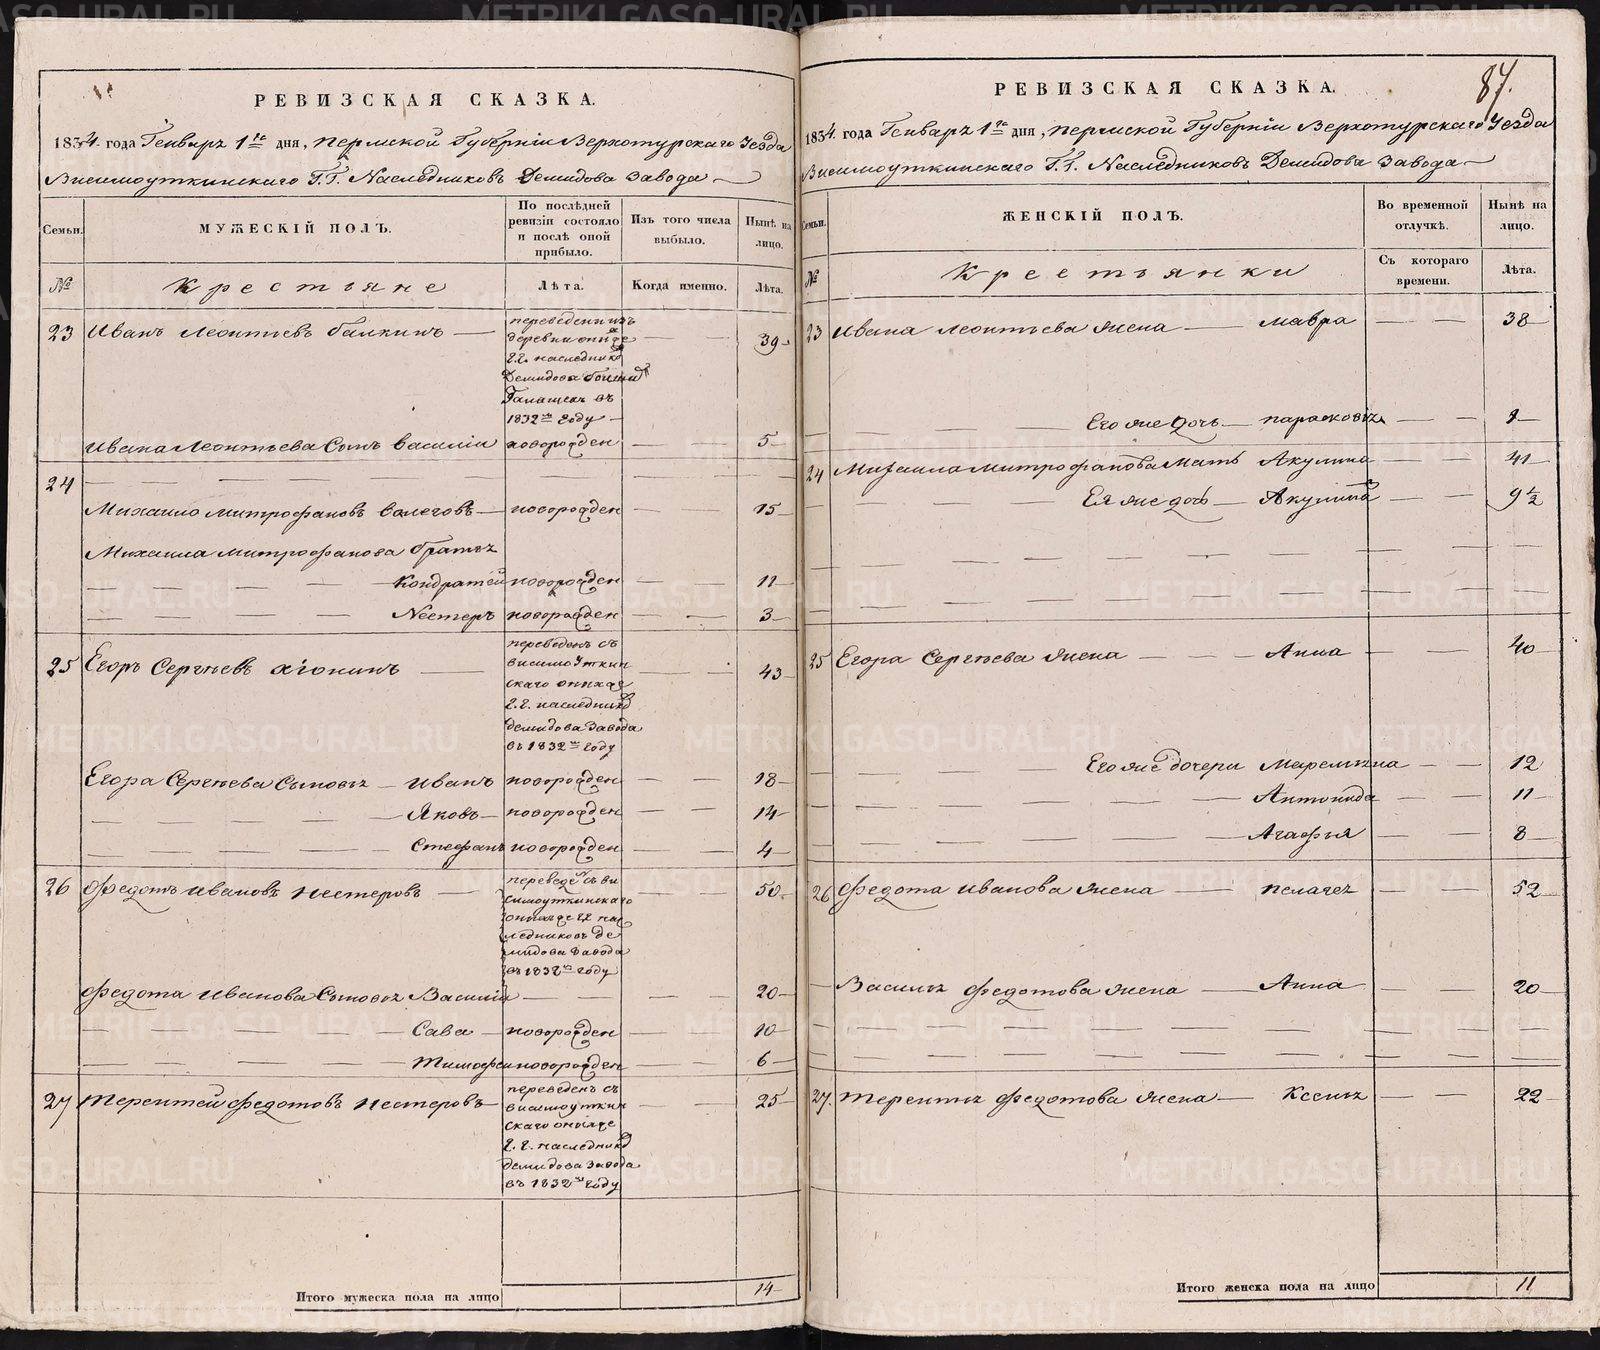 РЕВИЗСКАЯ СКАЗКА.
1834. года Генваря 1го дня, Пермской Губерніи Верхотурскаго Уезда
Висимоуткинскаго Г.Г. Наследниковъ Демидова Завода
Семьи.
МУЖЕСКІЙ ПОЛЪ.
По послѣдней ревизіи состояло и послѣ оной прибыло.
Изъ того числа выбыло.
Нынѣ на лицо.
№
Крестьяне
Лѣта.
Когда именно.
Лѣта.
23 Иванъ Леонтьевъ Галкинъ
переведенъ изъ
деревни оныхъ же
Г.Г. наследниковъ
Демидова
Галашекъ въ
1832мъ году
39
Ивана Леонтьева Сынъ Василіи новорожден 5
24
Михаило Митрофановъ Валеговъ новорожден 15
Михаила Митрофанова братья
Кондратей новорожден 11
Нестеръ новорожден 3
25 Егоръ Сергѣевъ Аѳонинъ
переведенъ съ
висимоуткин
скаго оныхъ же
Г.Г. наследниковъ
демидова Завода
въ 1832мъ году
43
Егора Сергѣева Сыновья Иванъ новорожден 18
Яковъ новорожден 14
Стефанъ новорожден 4
26 Федотъ Ивановъ Нестеровъ
переведенъ съ ви
симоуткинскаго
оныхъ же Г.Г. нас
ледниковъ Де
мидова Завода
въ 1832мъ году
50
Федота Иванова Сыновья Василіи 20
Сава новорожден 10
Тимофеи новорожден 6
27 Терентей Федотовъ Нестеровъ
переведенъ съ
висимоуткин
скаго оныхъ же
Г.Г. наследниковъ
демидова Завода
въ 1832мъ году
25
Итого мужеска пола на лицо 14
87.
РЕВИЗСКАЯ СКАЗКА.
1834. года Генваря 1го дня, Пермской Губерніи Верхотурскаго Уезда
Висимоуткинскаго Г.Г. Наследниковъ Демидова Завода
Семьи.
ЖЕНСКІЙ ПОЛЪ.
Во временной отлучкѣ.
Нынѣ на лицо.
№
Крестьянки
Съ котораго времени.
Лѣта.
23 Ивана Леонтьева жена Мавра 38
Его же дочь Парасковья
24 Михаила Митрофанова Мать Акулина 41
Ея же дочь Акулина 9 1/2
25 Егора Сергѣева жена Анна 40
Его же дочери Маремьяна 12
Антонида 11
Агафья 8
26 Федота Иванова жена Пелагея 52
Василья Федотова жена Анна 20
27. Терентья Федотова жена Ксенья 22
Итого женска пола на лицо 11
METRIKI.GASO-URAL.RU